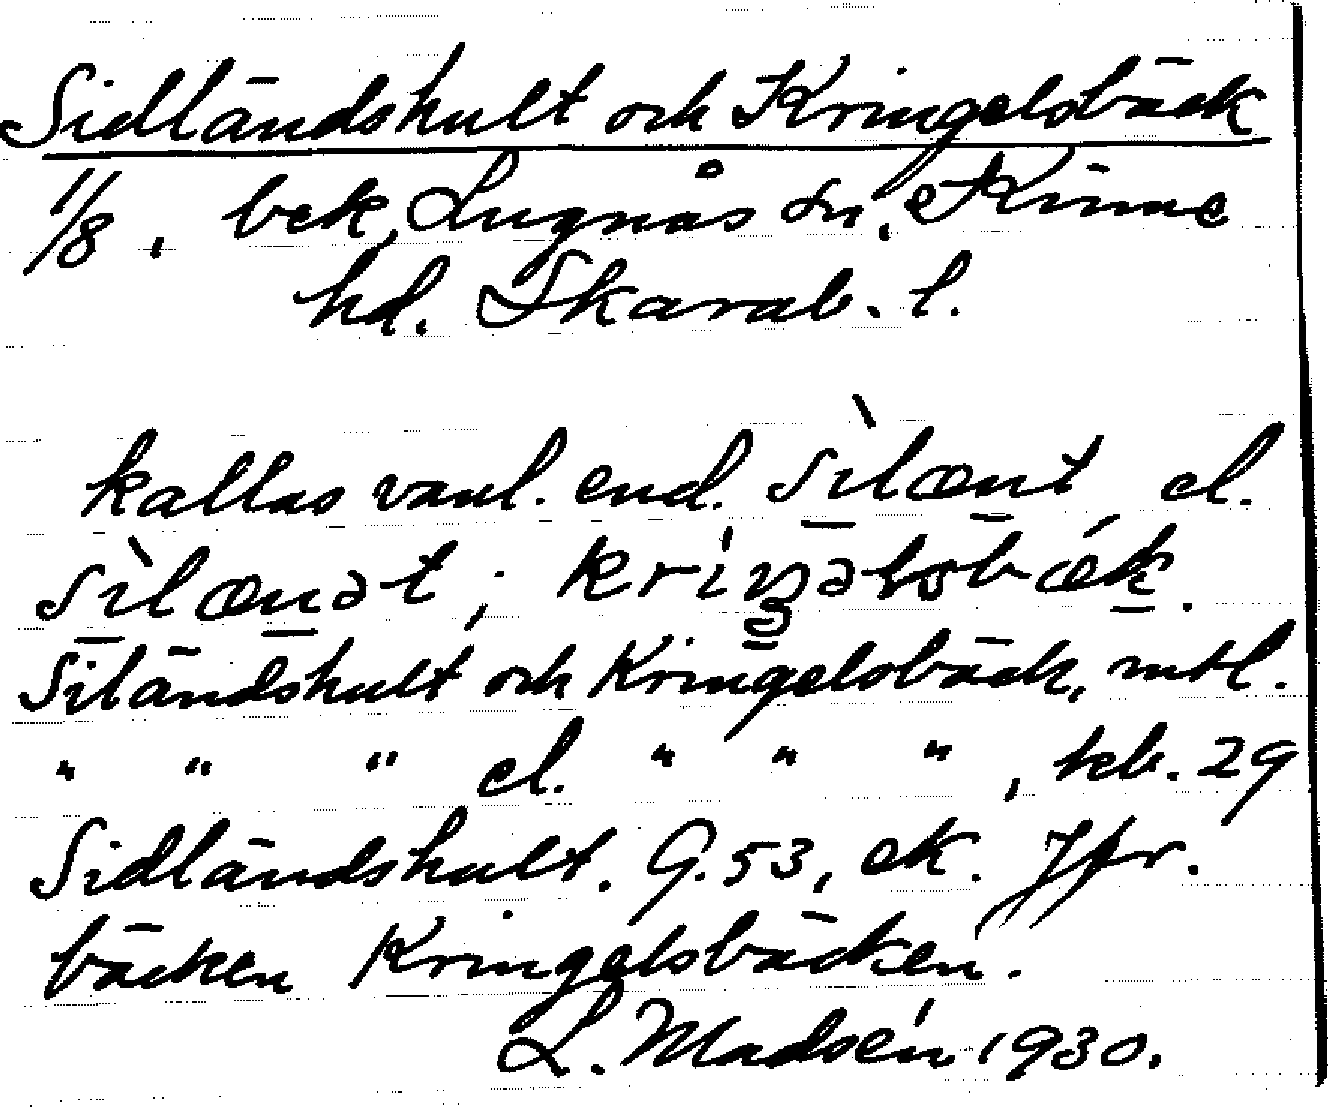 Sidländshult och Kringelsbäck
1/8, bek, Lugnås sn, Kinne
hd. Skarab. l.
kallas vanl. end. sìlænt el.
sìlænət; kríŋəlsbæ̀k.
Siländshult och Kringelsbäck, mtl.
" " " el. " " ", teb. 29
Sidländshult. G. 53, ek. Jfr.
bäcken Kringelsbäcken.
L. Madsén 1930.